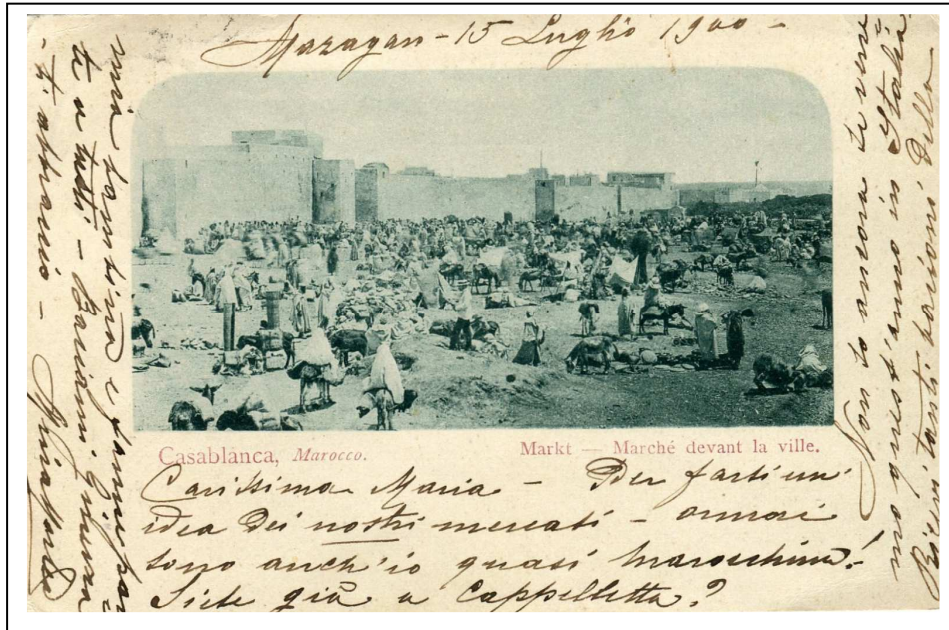 Mazagan - 15 Luglio 1900 -
Casablanca, Marocco.
Markt — Marché devant la ville.
Carissima Maria - Per farti un'
idea dei nostri mercati - ormai
sono anch'io quasi marocchina!
Siete già a Cappelletta?
Non so ancora se verre
mo quest'anno in Italia
Ricevi tanti bacioni dalla
mia bambina e fanne par
te a tutti - Baciami
ti abbraccio -